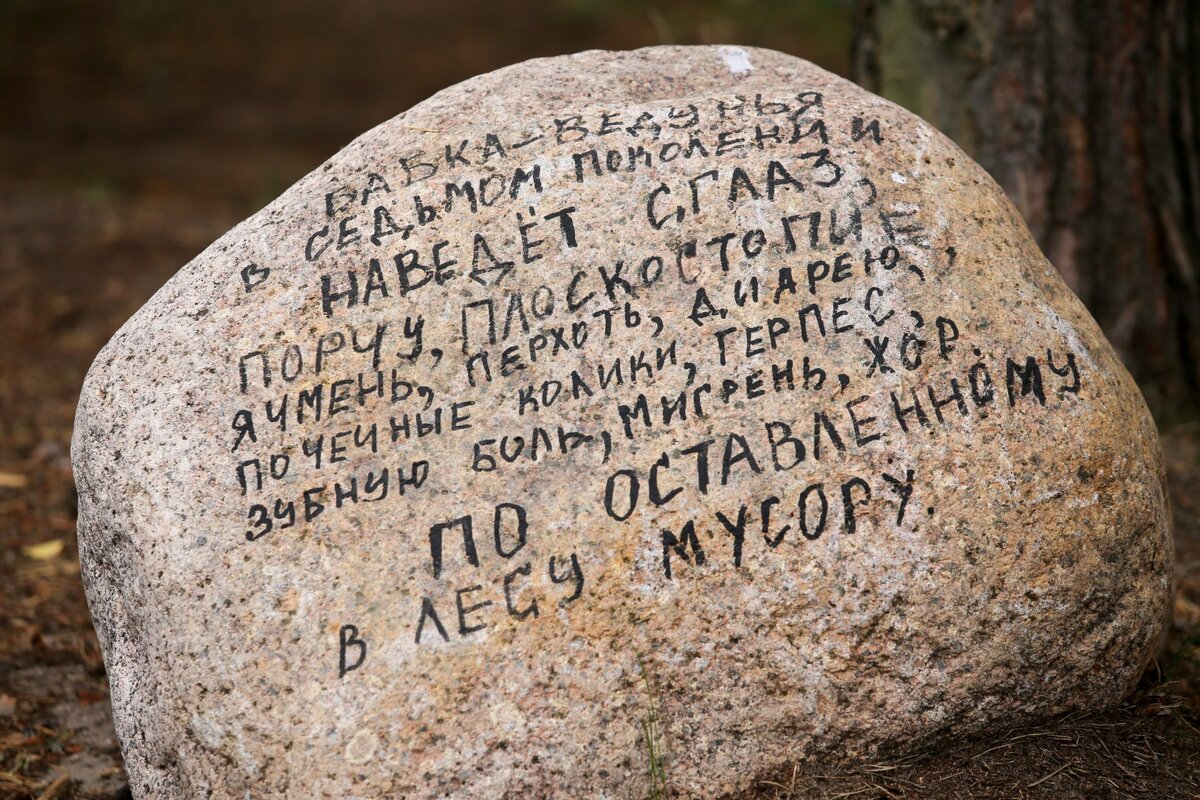 БАБКА-ВЕДУНЬЯ
В СЕДЬМОМ ПОКОЛЕНИИ
НАВЕДЁТ СГЛАЗ,
ПОРЧУ, ПЛОСКОСТОПИЕ,
ЯЧМЕНЬ, ПЕРХОТЬ, ДИАРЕЮ,
ПОЧЕЧНЫЕ КОЛИКИ, ГЕРПЕС,
ЗУБНУЮ БОЛЬ, МИГРЕНЬ, ЖОР.
ПО ОСТАВЛЕННОМУ
В ЛЕСУ МУСОРУ.